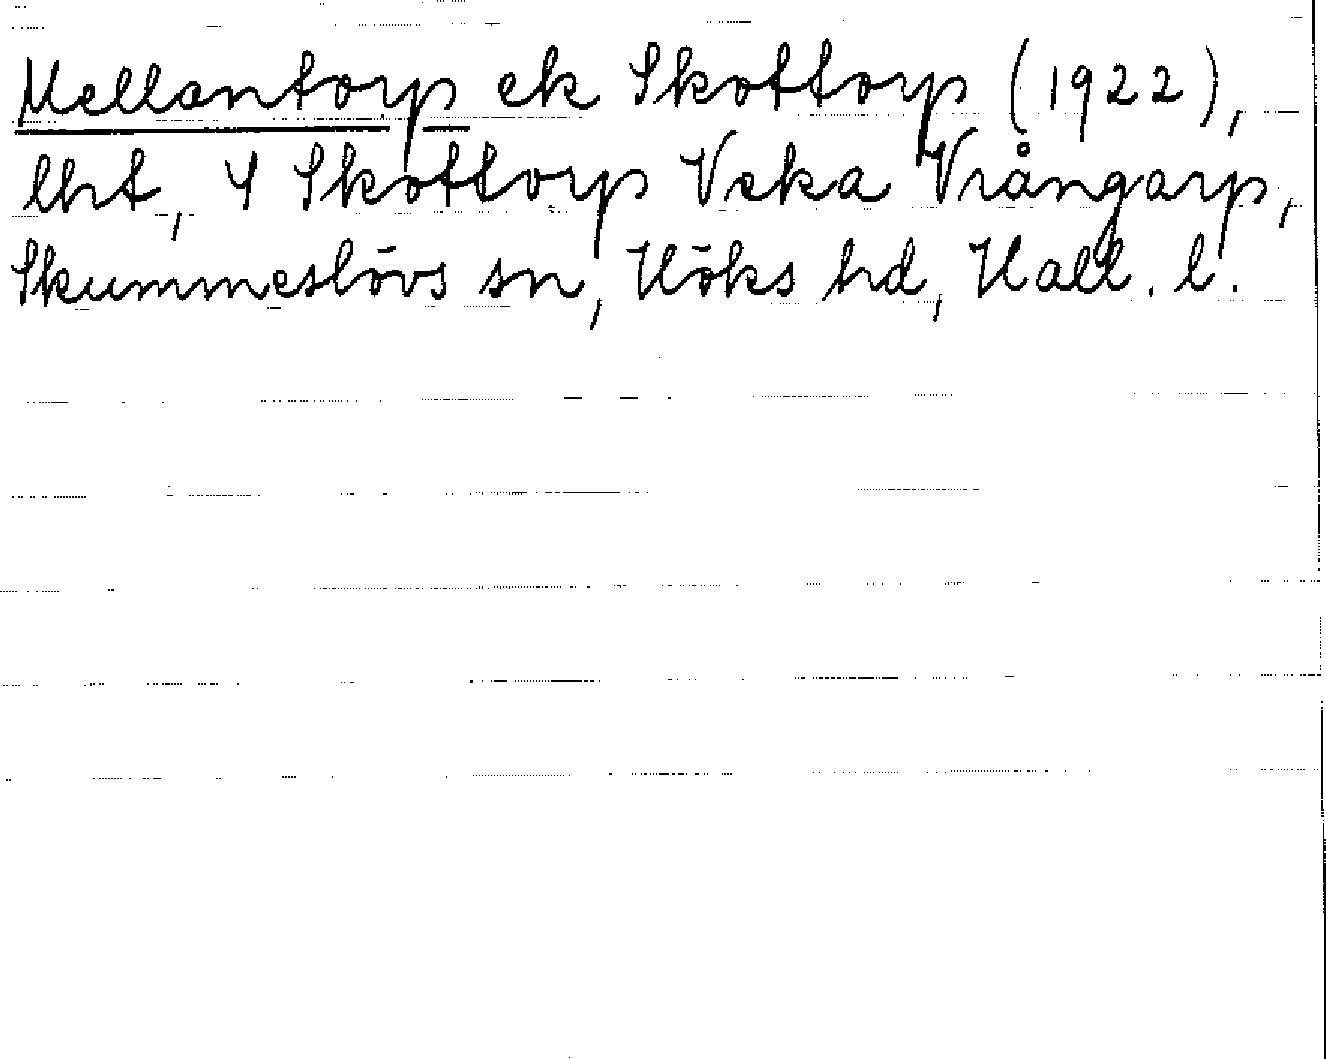 Mellantorp ek Skottorp (1922),
lht, 4 Skottorp Veka Vrångarp,
Skummeslövs sn, Höks hd, Hall. l.